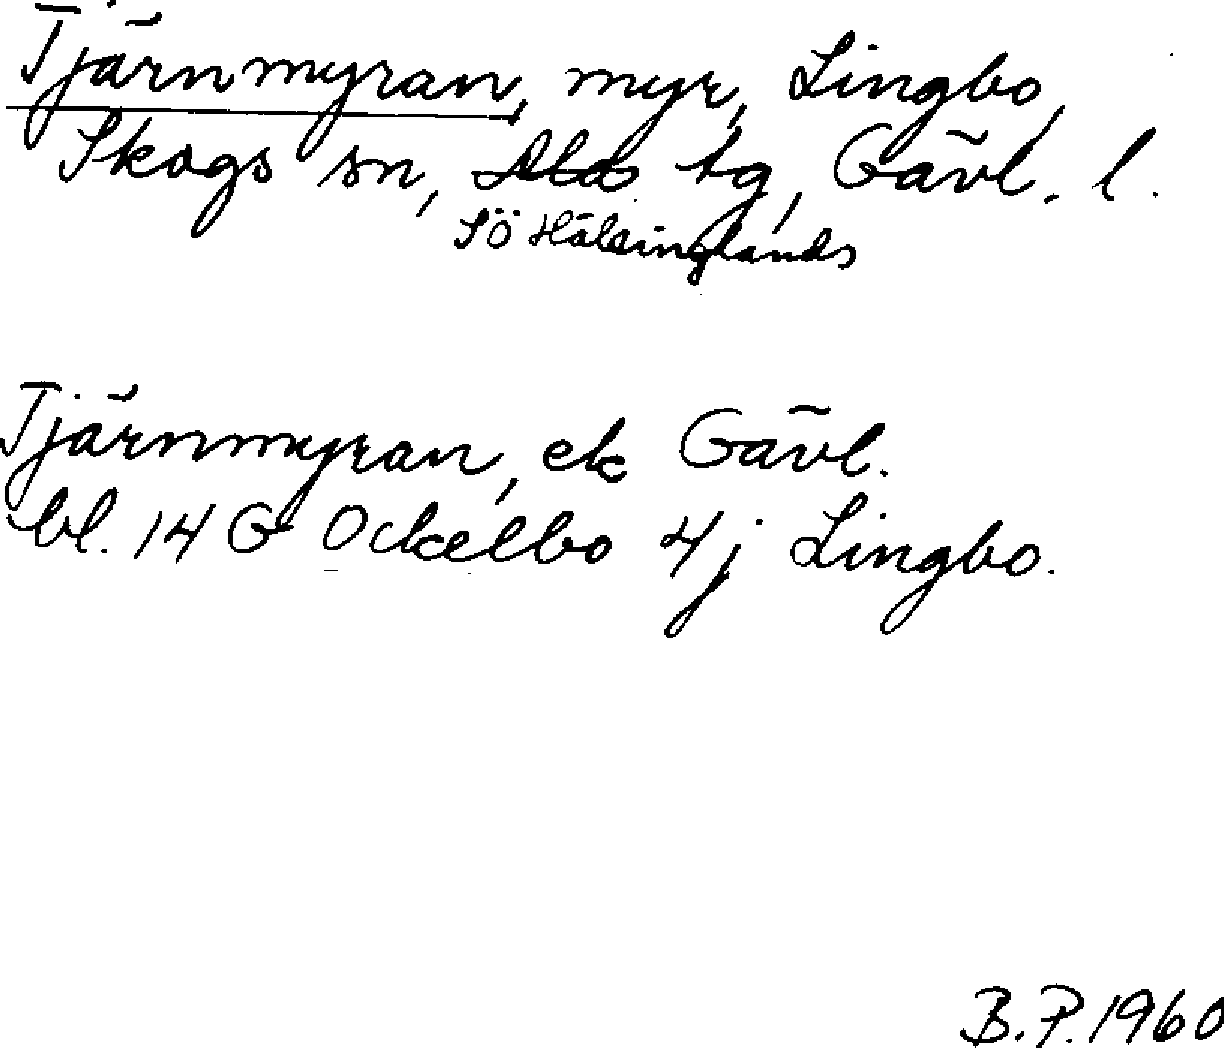 Tjärnmyran, myr, Lingbo,
Skogs sn, Ala tg, Gävl. l.
SÖ Hälsinglands
Tjärnmyran, ek Gävl.
bl. 14 G Ockelbo 4j Lingbo.
B.P. 1960